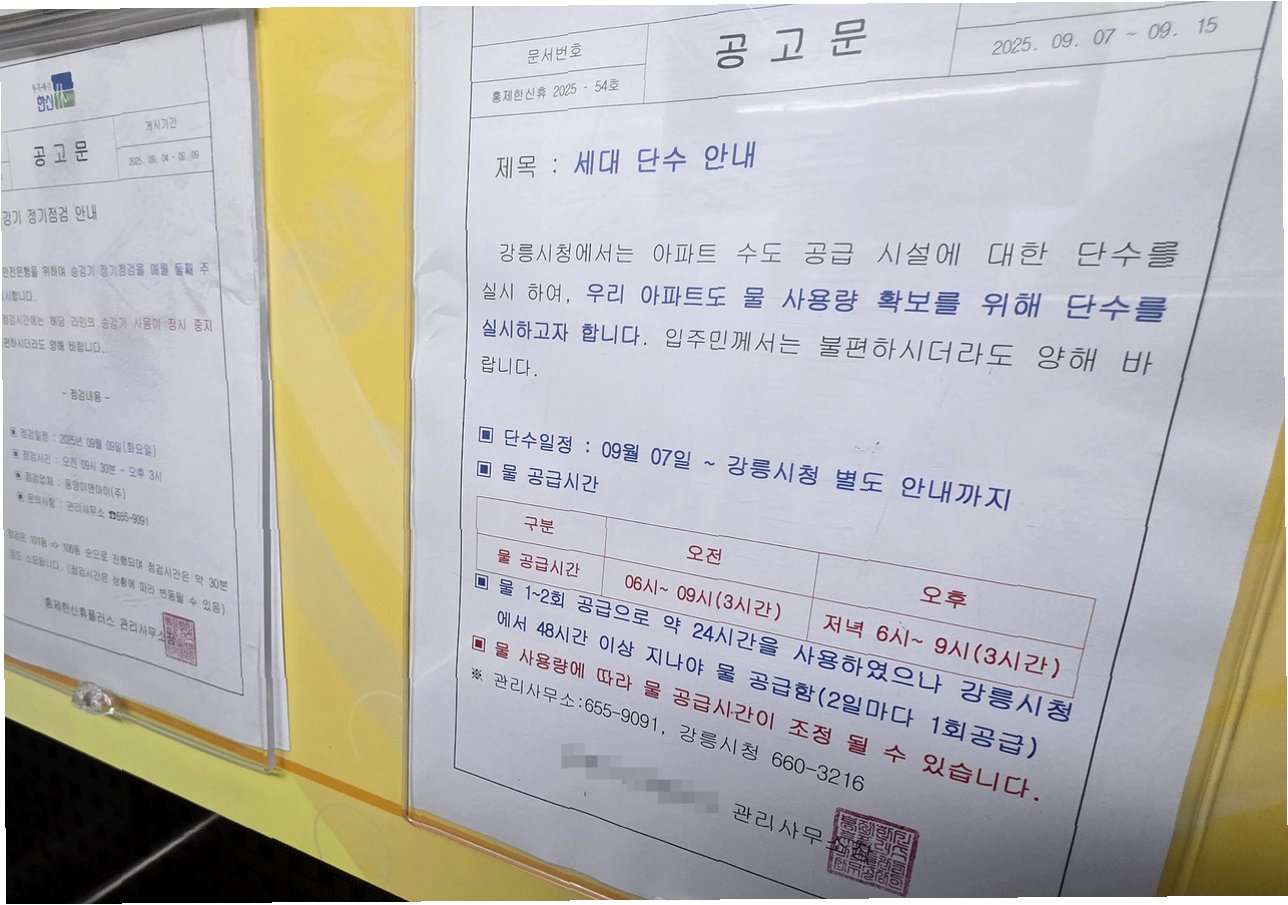 한신
공고문
게시기간
2025. 09. 04 - 09. 09
강기 정기점검 안내
안전운행을 위하여 승강기 정기점검을 매월 둘째 주
시합니다.
점검시간에는 해당 라인의 승강기 사용이 잠시 중지
편하시더라도 양해 바랍니다.
- 점검내용 -
▣ 점검일정 : 2025년 09월 09일(화요일)
▣ 점검시간 : 오전 09시 30분 ~ 오후 3시
▣ 점검업체 : 동양이엔아이(주)
▣ 문의사항 : 관리사무소 ☎655-9091
점검은 101동 => 106동 순으로 진행되며 점검시간은 약 30분
정도 소요됩니다. (점검시간은 상황에 따라 변동될 수 있음)
홍제한신휴플러스 관리사무소장
문서번호
홍제한신휴 2025 - 54호
공고문
2025. 09. 07 ~ 09. 15
제목 : 세대 단수 안내
강릉시청에서는 아파트 수도 공급 시설에 대한 단수를
실시 하여, 우리 아파트도 물 사용량 확보를 위해 단수를
실시하고자 합니다. 입주민께서는 불편하시더라도 양해 바
랍니다.
▣ 단수일정 : 09월 07일 ~ 강릉시청 별도 안내까지
▣ 물 공급시간
구분 오전 오후
물 공급시간 06시~ 09시(3시간) 저녁 6시~ 9시(3시간)
▣ 물 1~2회 공급으로 약 24시간을 사용하였으나 강릉시청
에서 48시간 이상 지나야 물 공급함(2일마다 1회공급)
▣ 물 사용량에 따라 물 공급시간이 조정 될 수 있습니다.
※ 관리사무소:655-9091, 강릉시청 660-3216
관리사무소장